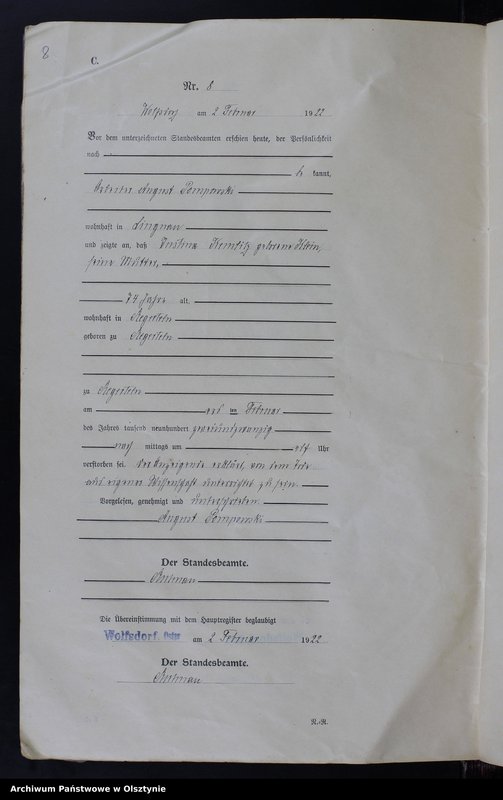 8
C.
Nr. 8
Wolfsdorf am 2 Februar 1922
Vor dem unterzeichneten Standesbeamten erschien heute, der Persönlichkeit
nach
be kannt,
Arbeiter August
wohnhaft in Lingnau
und zeigte an, daß geborene Klein,
seine Mutter,
74 Jahre alt,
wohnhaft in Regerteln
geboren zu Regerteln
zu Regerteln
am Februar
des Jahres tausend neunhundert zweiundzwanzig
nach mittags um elf Uhr
verstorben sei. Der Anzeigende erklärt, von dem Tode
aus eigener Wissenschaft unterrichtet zu sein.
Vorgelesen, genehmigt und unterschrieben
August
Der Standesbeamte.
Die Übereinstimmung mit dem Hauptregister beglaubigt
Wolfsdorf, Ostpr am 2 Februar 1922
Der Standesbeamte.
Archiwum Państwowe w Olsztynie